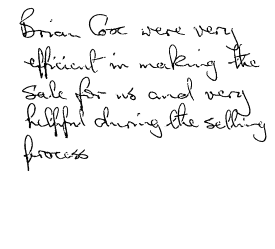 Brian Cox were very
efficient in making the
sale for us and very
helpful during the selling
process